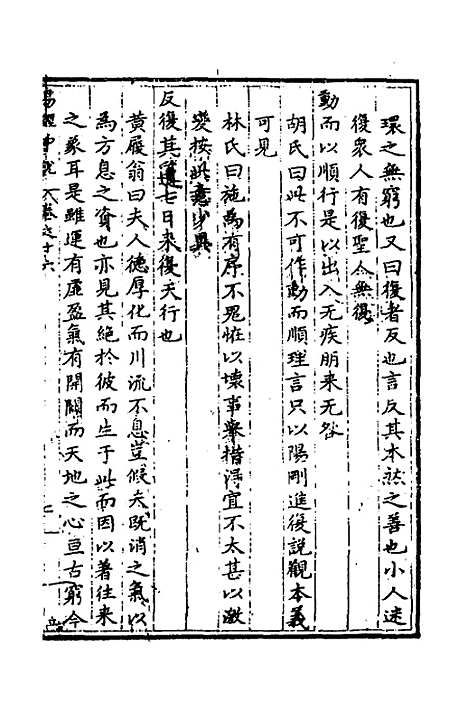 環之無窮也又曰復者反也言反其本然之善也小人迷
復衆人有復聖人無復
動而以順行是以出入无疾朋来无咎
胡氏曰此不可作動而順理言只以陽剛進復説觀本義
可見
林氏曰施為有序不冤恠以壊事舉措得宜不太甚以激
變按此意少異
反復其道七日来復天行也
黄履翁曰夫人德厚化而川流不息豈假夫既消之氣以
為方息之資也亦見其絶於彼而生于此而因以著往来
之象耳是雖運有虛盈氣有開闔而天地之心亘古窮今
易經 説 卷之十六